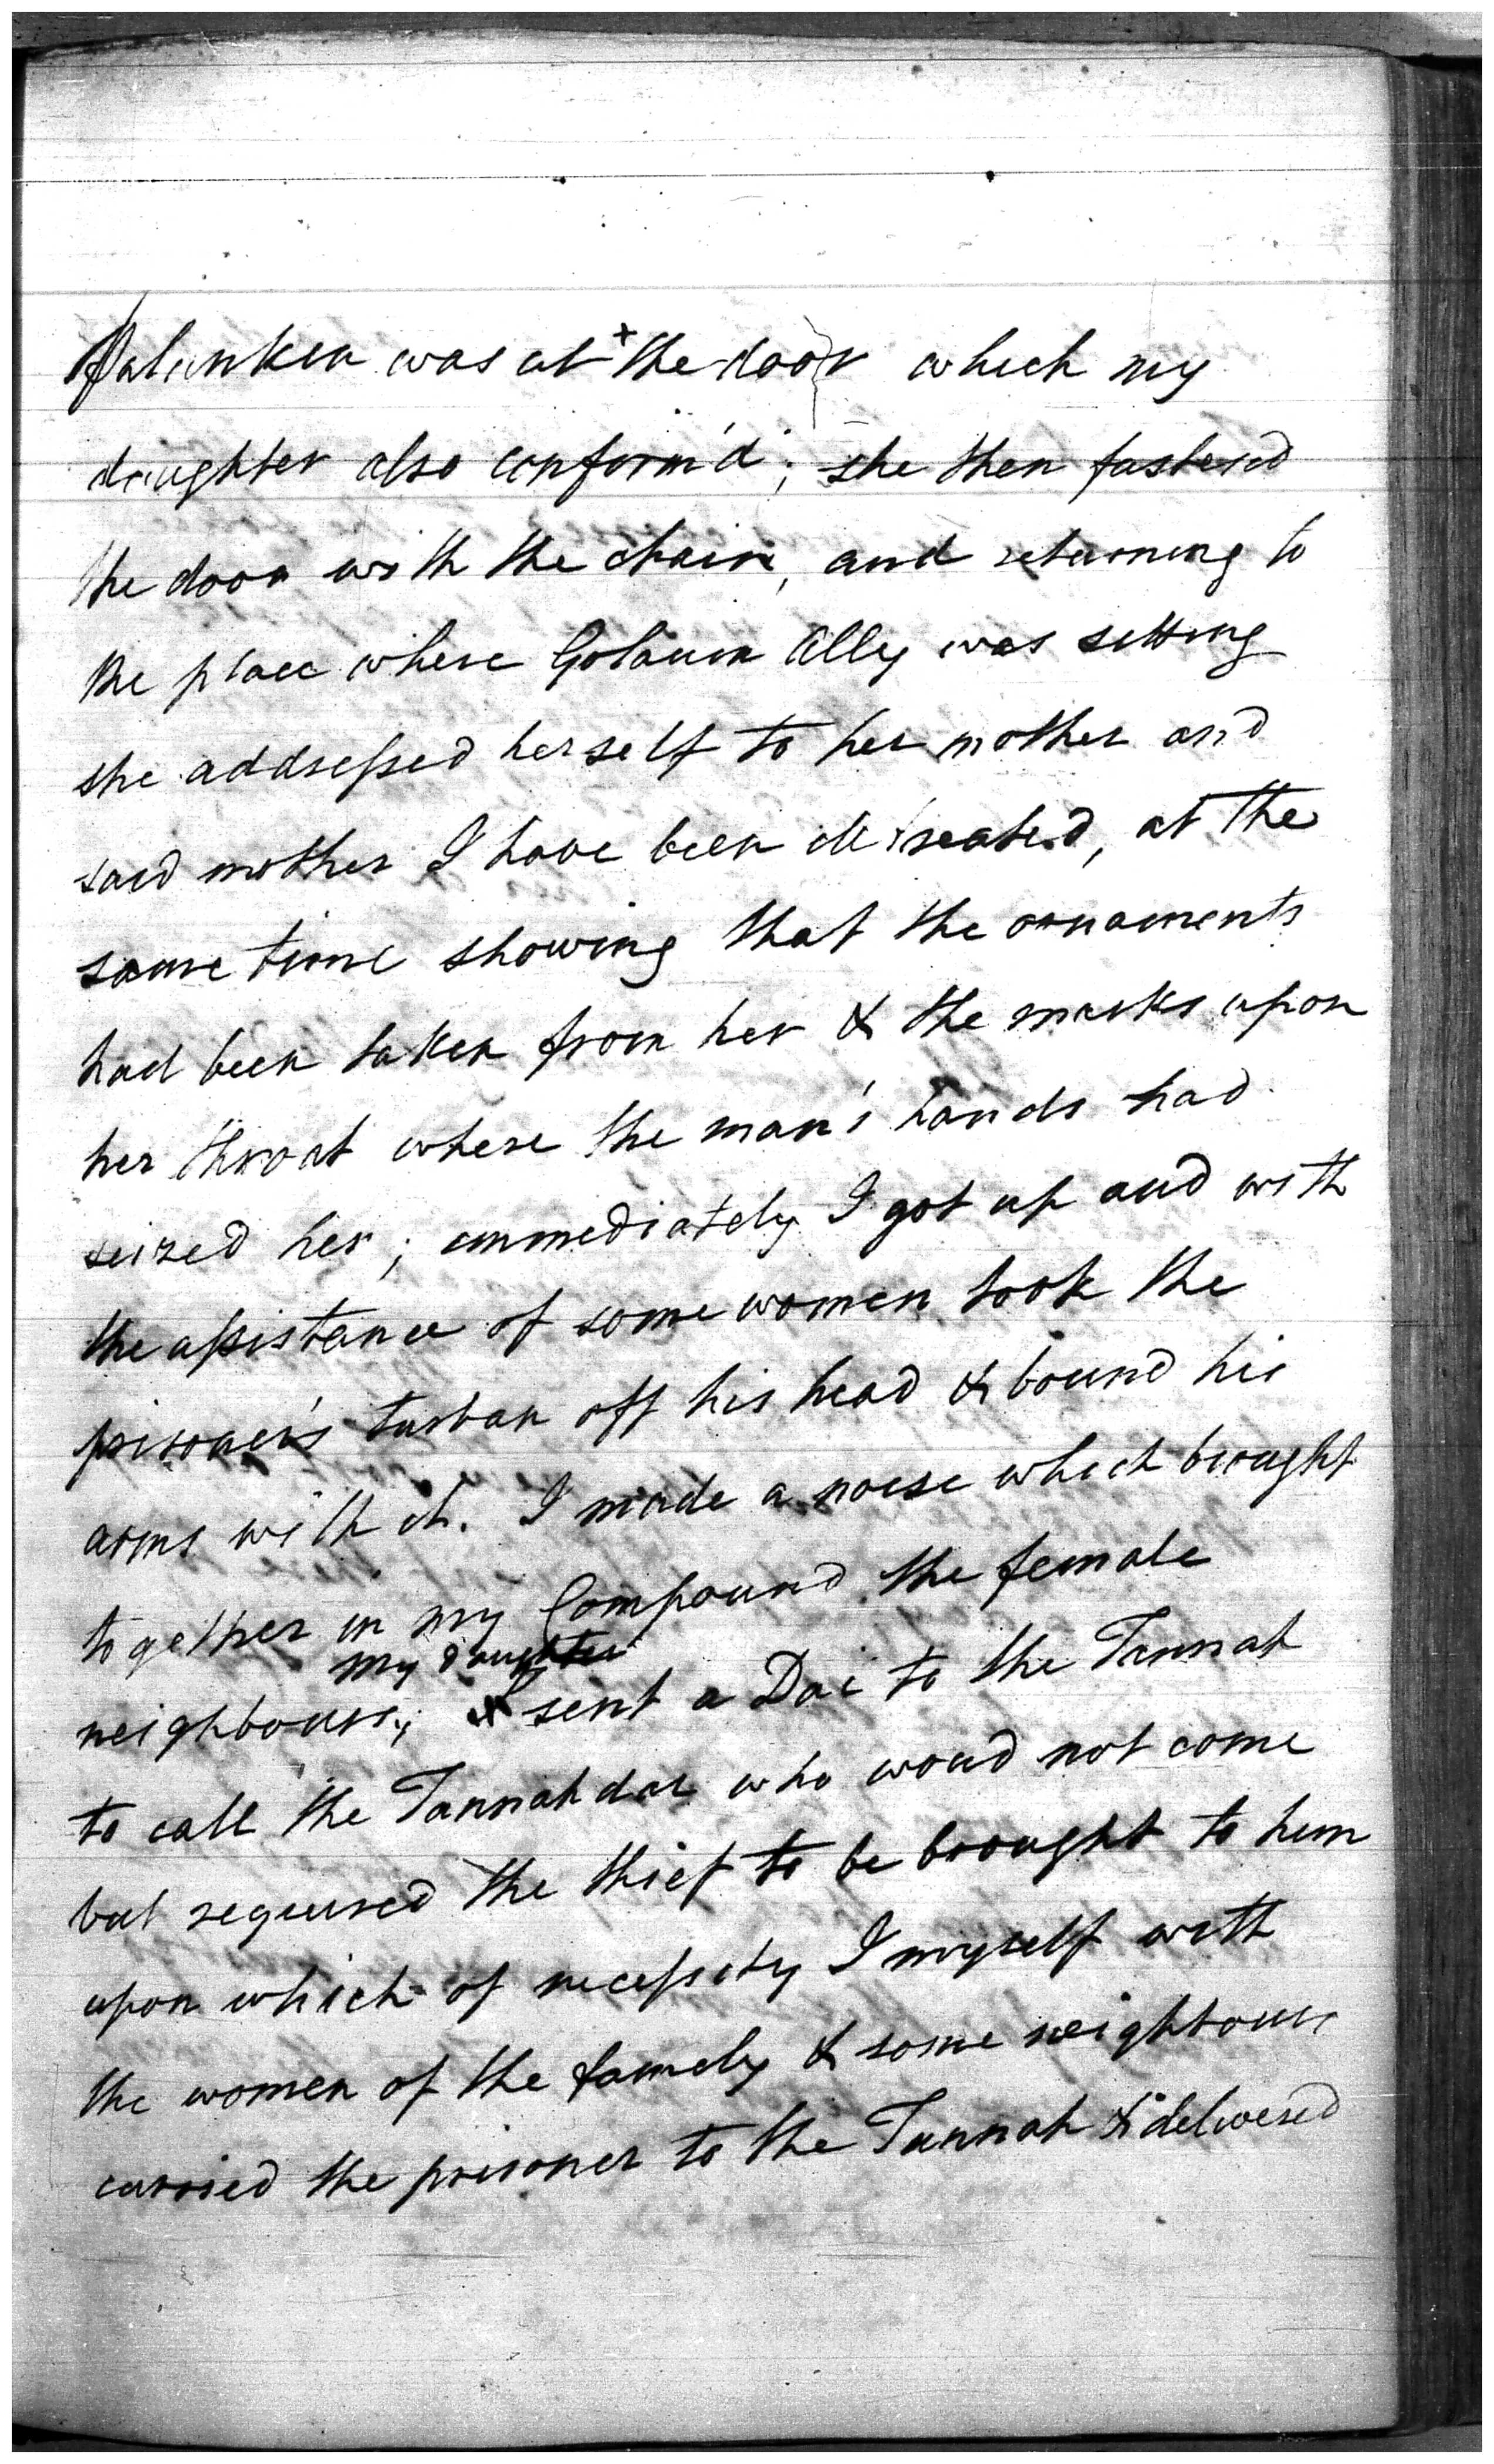 Palankeen was at + the door which my
daughter also confirm'd; she then fastened
the door with the chain, and returning to
the place where Golaum Ally was setting
she addressed herself to her mother and
said mother I have been ill treated, at the
same time showing that the ornaments
had been taken from her & the marks upon
her throat where the man's hands had
seized her; immediately I got up and with
the assistance of some women took the
prisoner's turban off his head & bound his
arms with it. I made a noise which brought
together in my Compound the female
my daughter
neighbours; sent a Dai to the Tannah
to call the Tannahdar who woud not come
but required the thief to be brought to him
upon which of necessity I myself with
the women of the family & some neighbours
carried the prisoner to the Tannah & delivered